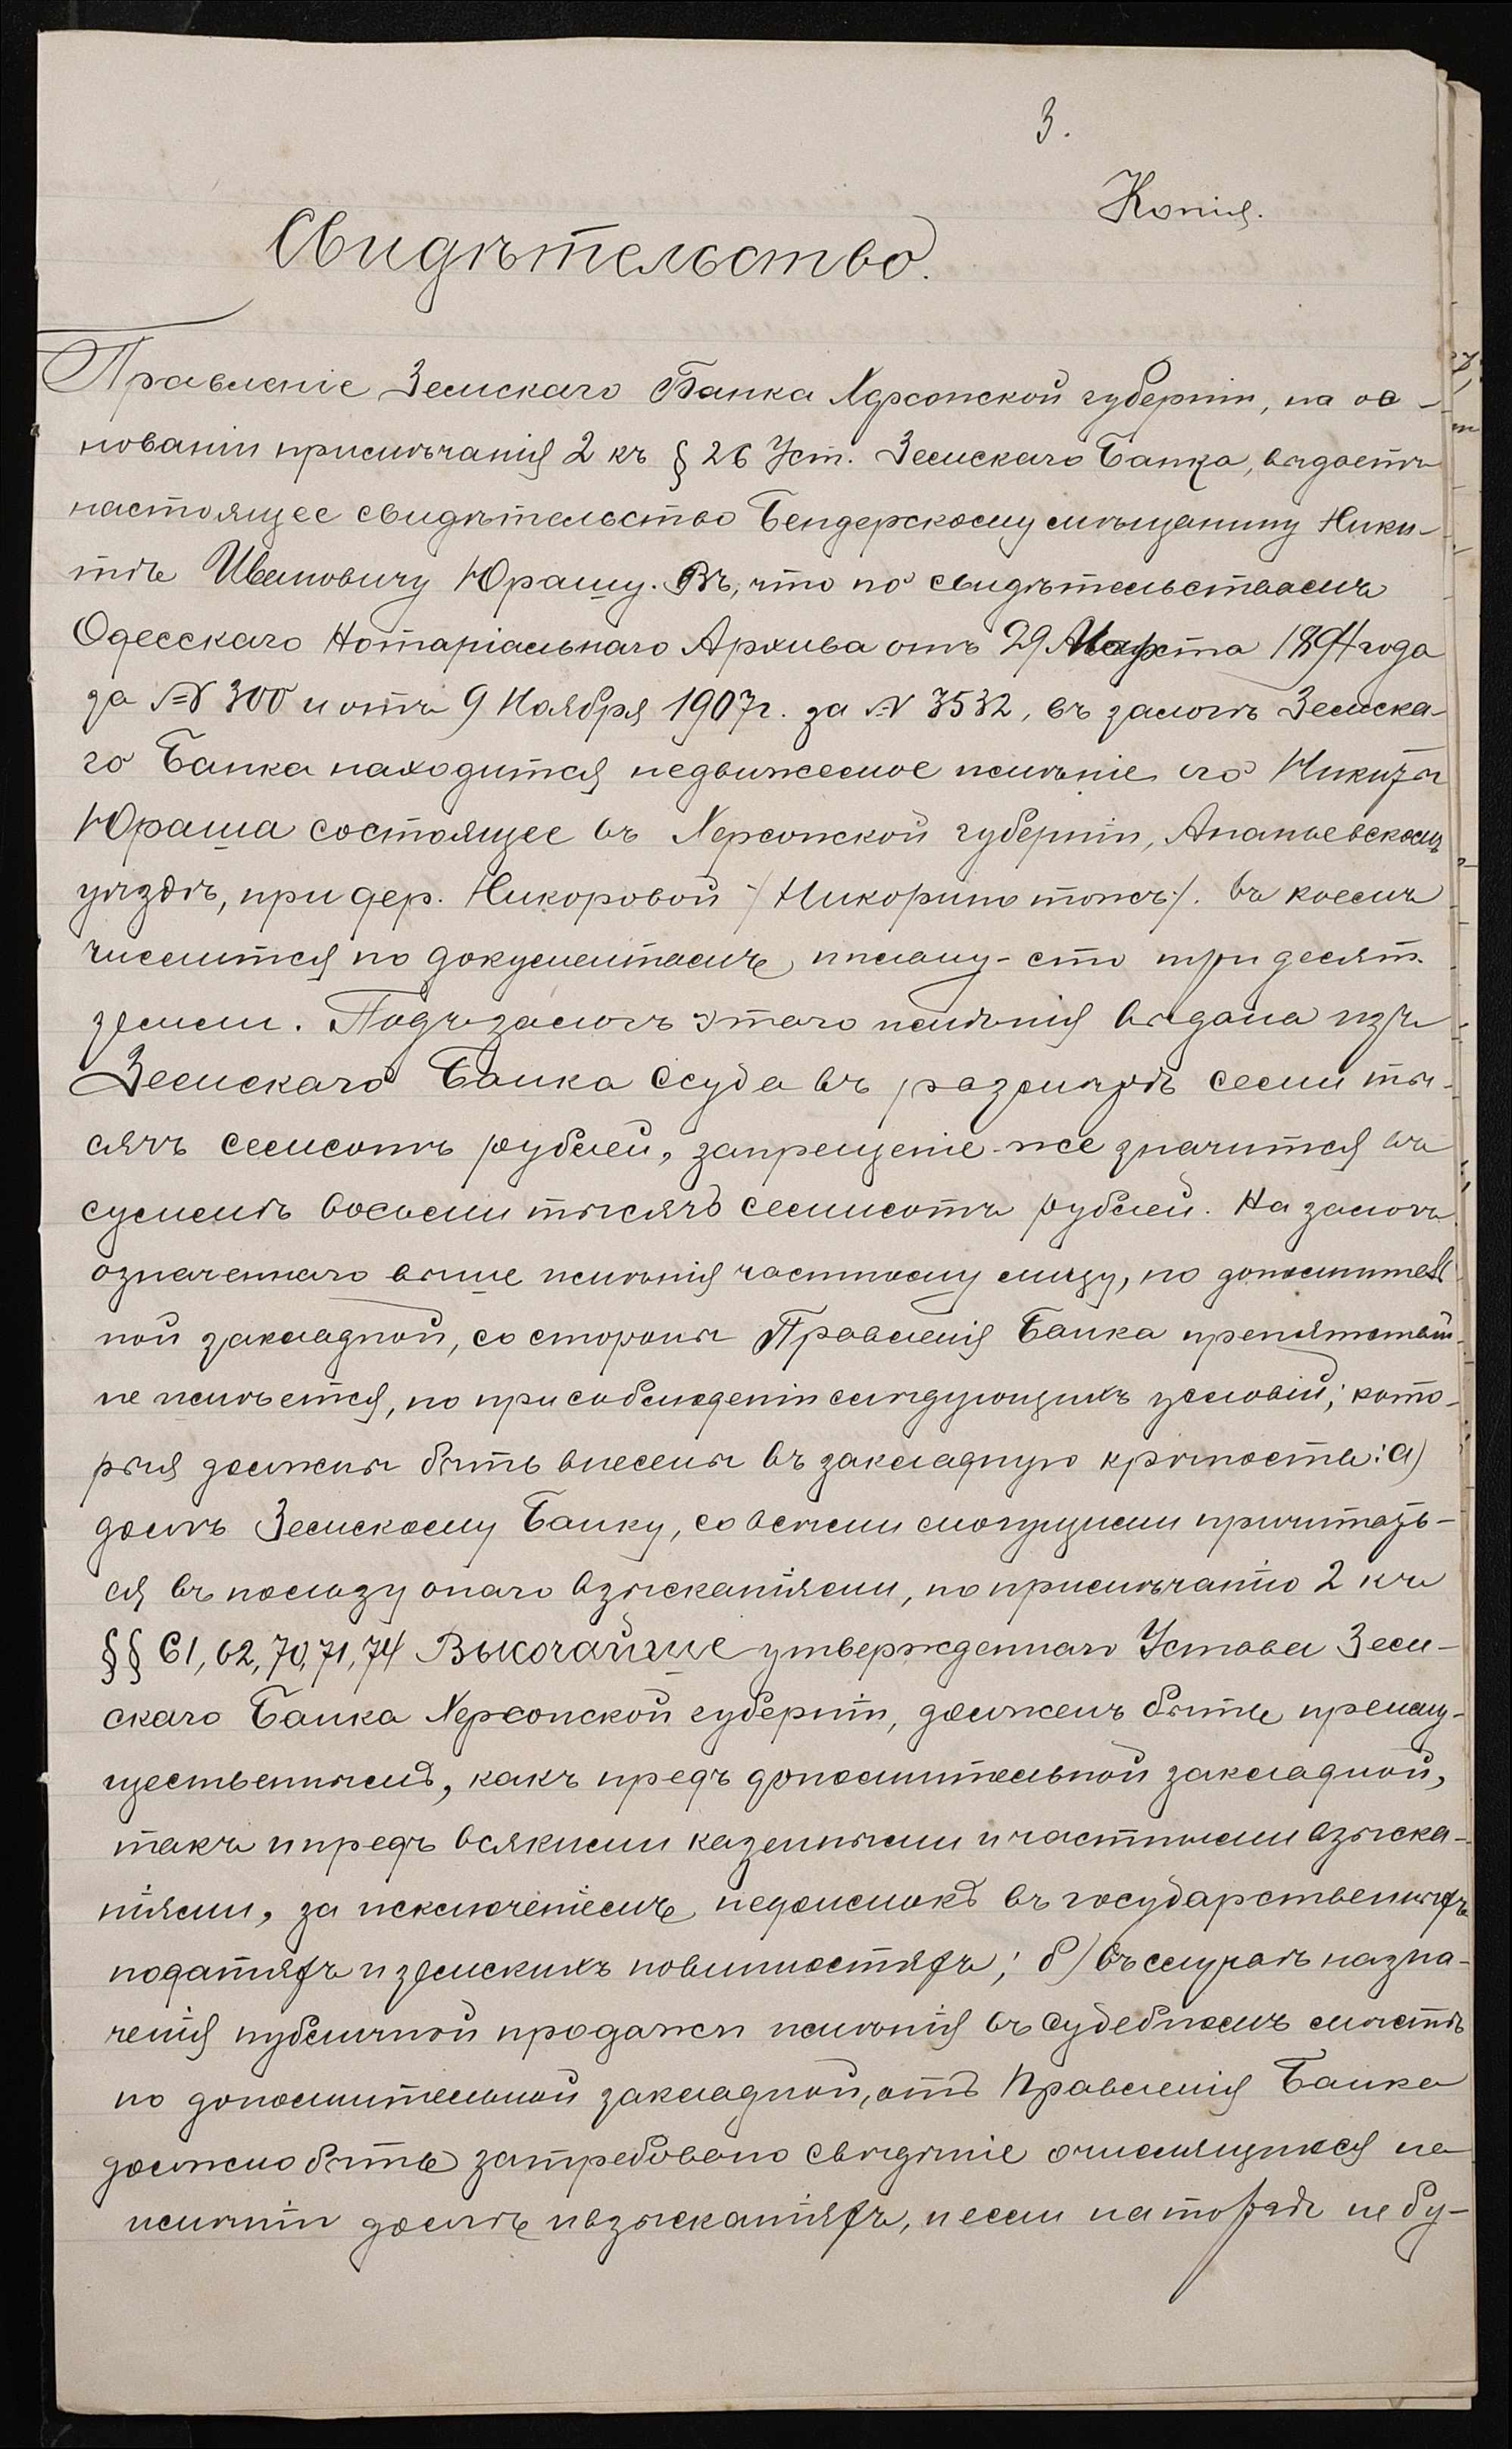 3.
Копія.
Свидѣтельство.
Правленіе Земскаго Банка Херсонской губерніи, на ос-
нованіи примѣчанія 2 къ § 26 Уст. Земскаго Банка, выдаетъ
настоящее свидѣтельство Бендерскому мѣщанину Ники-
тѣ Ивановичу Юрашу. Въ, что по свидѣтельствамъ
Одесскаго Нотаріальнаго Архива отъ 29 Марта 1894 года
за № 300 и отъ 9 Ноября 1907 г. за № 3532, въ залогѣ Земска-
го Банка находится недвижемое имѣніе его Никиты
Юраша состоящее въ Херсонской губерніи, Ананьевскомъ
уѣздѣ, при дер. Никоровой /Никорино тожъ/. въ коемъ
числится по документамъ, имѣнія сто три десят.
земли. Подъ залогъ этого имѣнія выдана изъ
Земскаго Банка ссуда въ размѣрѣ семи ты-
сячъ семисотъ рублей, запрещеніе-же значится въ
суммѣ восьми тысячъ семисотъ рублей. На залогъ
означеннаго выше имѣнія частному лицу, по дополнитель
ной закладной, со стороны Правленія Банка препятствій
не имѣется, но при соблюденіи слѣдующихъ условій; кото-
рыя должны быть внесены въ закладную крѣпость: а)
долгъ Земскому Банку, со всѣми могущими причитать-
ся въ пользу онаго взысканіями, по примѣчанію 2 къ
§§ 61, 62, 70, 71, 74 Высочайше утвержденнаго Устава Зем-
скаго Банка Херсонской губерніи, долженъ быть преиму-
щественнымъ, какъ предъ дополнительной закладной,
такъ и предъ всякими казенными и частными взыска-
ніями, за исключеніемъ недоимокъ въ государственныхъ
податяхъ и земскихъ повинностяхъ; б) въ случаѣ назна-
ченія публичной продажи имѣнія въ судебномъ мѣстѣ
по дополнительной закладной, отъ Правленія Банка
должно быть затребовано свѣдѣніе о числящихся на
имѣніи долгѣ и взысканіяхъ, и если на торгѣ не бу-